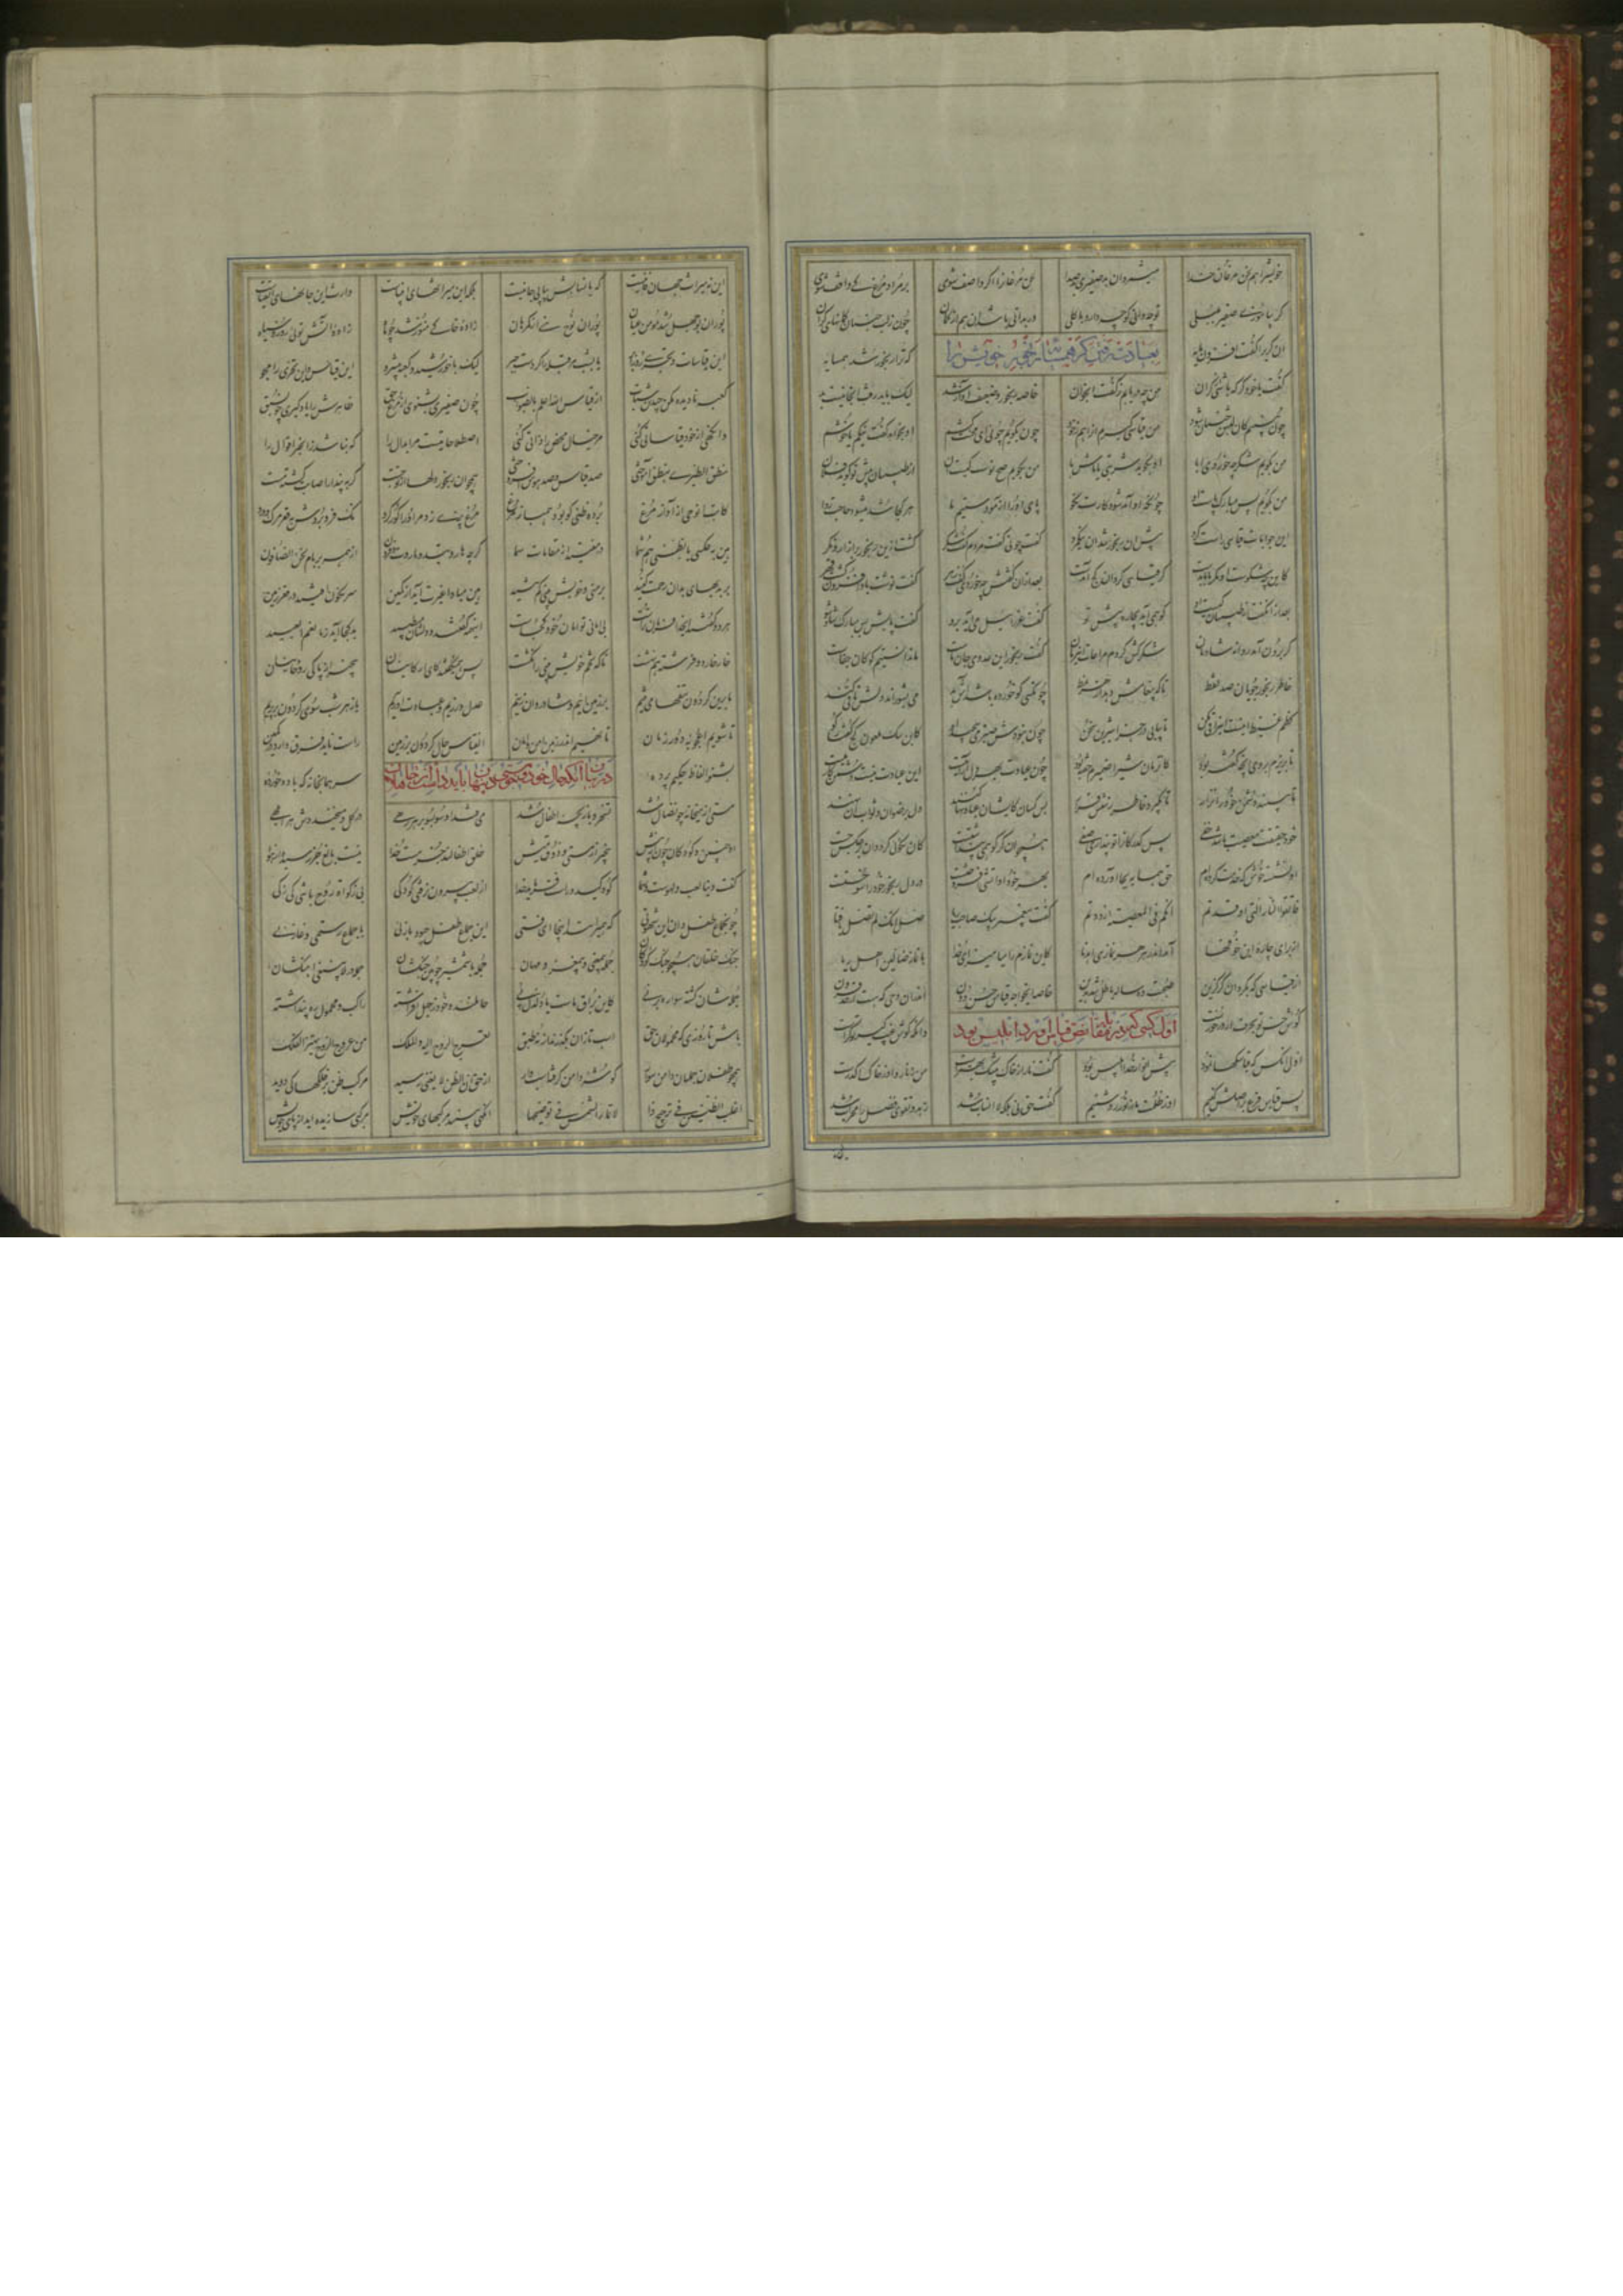 خویش را هم مرغان خدا می‌شمر صفیری و صدا مرغانرا اگر واصف شوی بر مراد مرغ کی واقف شوی
گر بیاموزی صفیر بلبلی تو چه دانی کو چه دارد با گلی ور بدانی باشد آن هم از گمان چون ز لب جنبان گمانهای کران
بعیادت رفتن کر رنجور خویش را
آن کری را گفت افزون مایه که ترا رنجور شد همسایه
گفت با خود کر که با گوش گران من چه دریابم ز گفت آن جوان خاصه رنجور و ضعیف آواز شد لیک باید رفت آنجا نیست بد
چون ببینم کان لبش جنبان شود من قیاسی گیرم آنرا هم ز خود چون بگویم چونی ای محنت کشم او بخواهد گفت نیکم یا خوشم
من بگویم شکر چه خوردی ابا او بگوید شربتی یا ماش با من بگویم صح نوشت کیست آن از طبیبان پیش تو گوید فلان
من بگویم بس مبارک پاست او چونکه او آمد شود کارت نکو پای او را آزمودستیم ما هر کجا شد میشود حاجت روا
این جوابات قیاسی راست کرد پیش آن رنجور شد آن نیک مرد گفت چونی گفت مردم گفت شکر گشت ازین رنجور پر آزار و نکر
کاین چه شکرست او مگر با ما بدست کر قیاسی کرد و آن کژ آمدست بعد ازان گفتش چه خوردی گفت زهر گفت نوشت باد افزون گشت قهر
بعد ازان گفت از طبیبان کیست او کو همی آید بچاره پیش تو گفت عزرائیل می‌آید برو گفت پایش بس مبارک شاد شو
کر برون آمد شادمان شکر کش کردم مراعات این زمان گفت رنجور این عدو جان ماست ما ندانستیم کو کان جفاست
خاطر رنجور جویان صد سقط تا که پیغامش دهد از هر نمط چون کسی کو خورده باشد آش بد می بشوراند دلش تا قی کند
کظم غیظ اینست آنرا قی مکن تا بیابی در جزا شیرین سخن چون نبودش صبر می پیچید او کاین سگ
تا بریزم بر وی آنچه گفته بود کان زمان شیر ضمیرم خفته بود چون عیادت بهر دل آرامیست این عیادت نیست دشمن کامیست
تا ببیند دشمن خود را نزار تا بگیرد خاطر زشتش قرار بس کسان کایشان دل برضوان و ثواب آن نهند
خود حقیقت معصیت باشد خفی بس کدر کانرا تو پنداری صفی همچو آن کر که همی پنداشتست کان نکویی کرد و آن برعکس جست
او نشسته خوش که خدمت کرده ام حق همسایه بجا آورده ام بهر خود او آتشی افروختست در دل رنجور خود را سوختست
فاتقوا النار التی اوقدتم انکم فی المعصیة ازددتم گفت پیغمبر صل انک لم تصل یا فتی
از برای چاره این خوفها آمد اندر هر نمازی اهدنا کاین نمازم را میامیز ای خدا با نماز ضالین و اهل ریا
از قیاسی که بکرد آن کر گزین صحبت ده ساله باطل شد بدین خاصه ایخواجه قیاس حس دون اندر آن وحیی که هست از حد فزون
گوش حس تو بحرف ار درخورست اول کسی که در مقابله نص قیاس آورد ابلیس بود دانکه گوش غیب گیر تو کرست
اول آنکس کین قیاسکها نمود پیش انوار خدا ابلیس بود گفت نار از خاک بی شک بهترست من ز نار و او ز خاک اکدرست
پس قیاس فرع بر اصلش کنیم او ز ظلمت ما ز نور روشنیم گفت حق نی بلکه لا انساب شد زهد و تقوی فضل را محراب شد
این نه میراث جهان فانیست که بانسابش بیابی جانیست بلکه این میراثهای انبیاست وارث این جانهای اتقیاست
پور آن بوجهل شد مومن عیان پور آن نوح نبی از گمرهان زاده خاکی منور شد چو ماه زاده آتش تویی رو رو سیاه
این قیاسات و تحری روز ابر یا بشب مر قبله را کردست حبر لیک با خورشید و کعبه پیش رو این قیاس و این تحری را مجو
کعبه نادیده مکن رو زو متاب از قیاس الله اعلم بالصواب چون صفیری بشنوی از مرغ حق ظاهرش را یاد گیری چون سبق
وانگهی از خود قیاساتی کنی مر خیال محض را ذاتی کنی اصطلاحاتیست مر ابدال را که نباشد زان خبر اقوال را
منطق الطیری بصوت آموختی صد قیاس و صد هوس افروختی همچو آن رنجور دلها از تو خست کر بپندار اصابت گشته مست
کاتب آن وحی زان آواز مرغ برده ظنی کو بود همباز مرغ مرغ پری زد مر او را کور کرد نک فرو بردش بقعر مرگ و درد
هین بعکسی یا بظنی هم شما در میفتید از مقامات سما گرچه هاروتید و ماروت و فزون از همه بر بام نحن الصافون
بر بدیهای بدان رحمت کنید بر منی و خویش بینی کم تنید هین مبادا غیرت آید از کمین سرنگون افتید در قعر زمین
هر دو گفتند ای خدا فرمان تراست بی امان تو امانی خود کجاست این همی گفتند و دلشان می طپید بد کجا آید ز ما نعم العبید
خار خار دو فرشته هم نهشت تا که تخم خویش بینی را نکشت پس همی گفتند کای ارکانیان بیخبر از پاکی روحانیان
ما برین گردون تتقها می تنیم بر زمین آییم و شادروان زنیم عدل ورزیم و عبادت آوریم باز هر شب سوی گردون بر پریم
تا شویم اعجوبه دور زمان تا نهیم اندر زمین امن و امان آن قیاس حال گردون بر زمین راست ناید فرق دارد در کمین
بشنو الفاظ حکیم پرده در بیان آنکه حال خود و مستی خود پنهان باید داشت از جاهلان سر همانجا نه که باده خورده
مستی از میخانه چو ضال شد تسخر و بازیچه اطفال شد می فتد او سو بسو بر هر رهی در گل و میخنددش هر ابلهی
او چنین و کودکان اندر پیش بیخبر از مستی و ذوق میش خلق اطفالند جز مست خدا نیست بالغ جز رهیده از هوا
گفت دنیا لعب و لهوست و شما کودکید و راست فرماید خدا از لعب بیرون نرفتی کودکی بی زکات روح کی باشی زکی
چون جماع طفل دان این شهوتی که همی رانند اینجا ای فتی این جماع طفل چه بود بازیی با جماع رستمی و غازیی
جنگ خلقان همچو جنگ کودکان جمله بی معنی و بی مغز و مهان جمله با شمشیر چوبین جنگشان جمله در لاینبغی آهنگشان
جمله شان گشته سواره بر نیی کاین براق ماست یا دلدل پیی حاملند و خود ز جهل افراشته راکب و محمول ره پنداشته
باش تا روزی که محمولان حق اسب تازان بگذرند از نه طبق تعرج الروح الیه و الملک من عروج الروح یهتز الفلک
همچو طفلان جمله تان دامن سوار گوشه دامن گرفته اسب وار از حق ان الظن لا یغنی رسید مرکب ظن بر فلکها کی دوید
اغلب الظنین فی ترجیح ذا لا تمار الشمس فی توضیحها آنگهی بینند مرکبهای خویش مرکبی سازیده اید از پای خویش